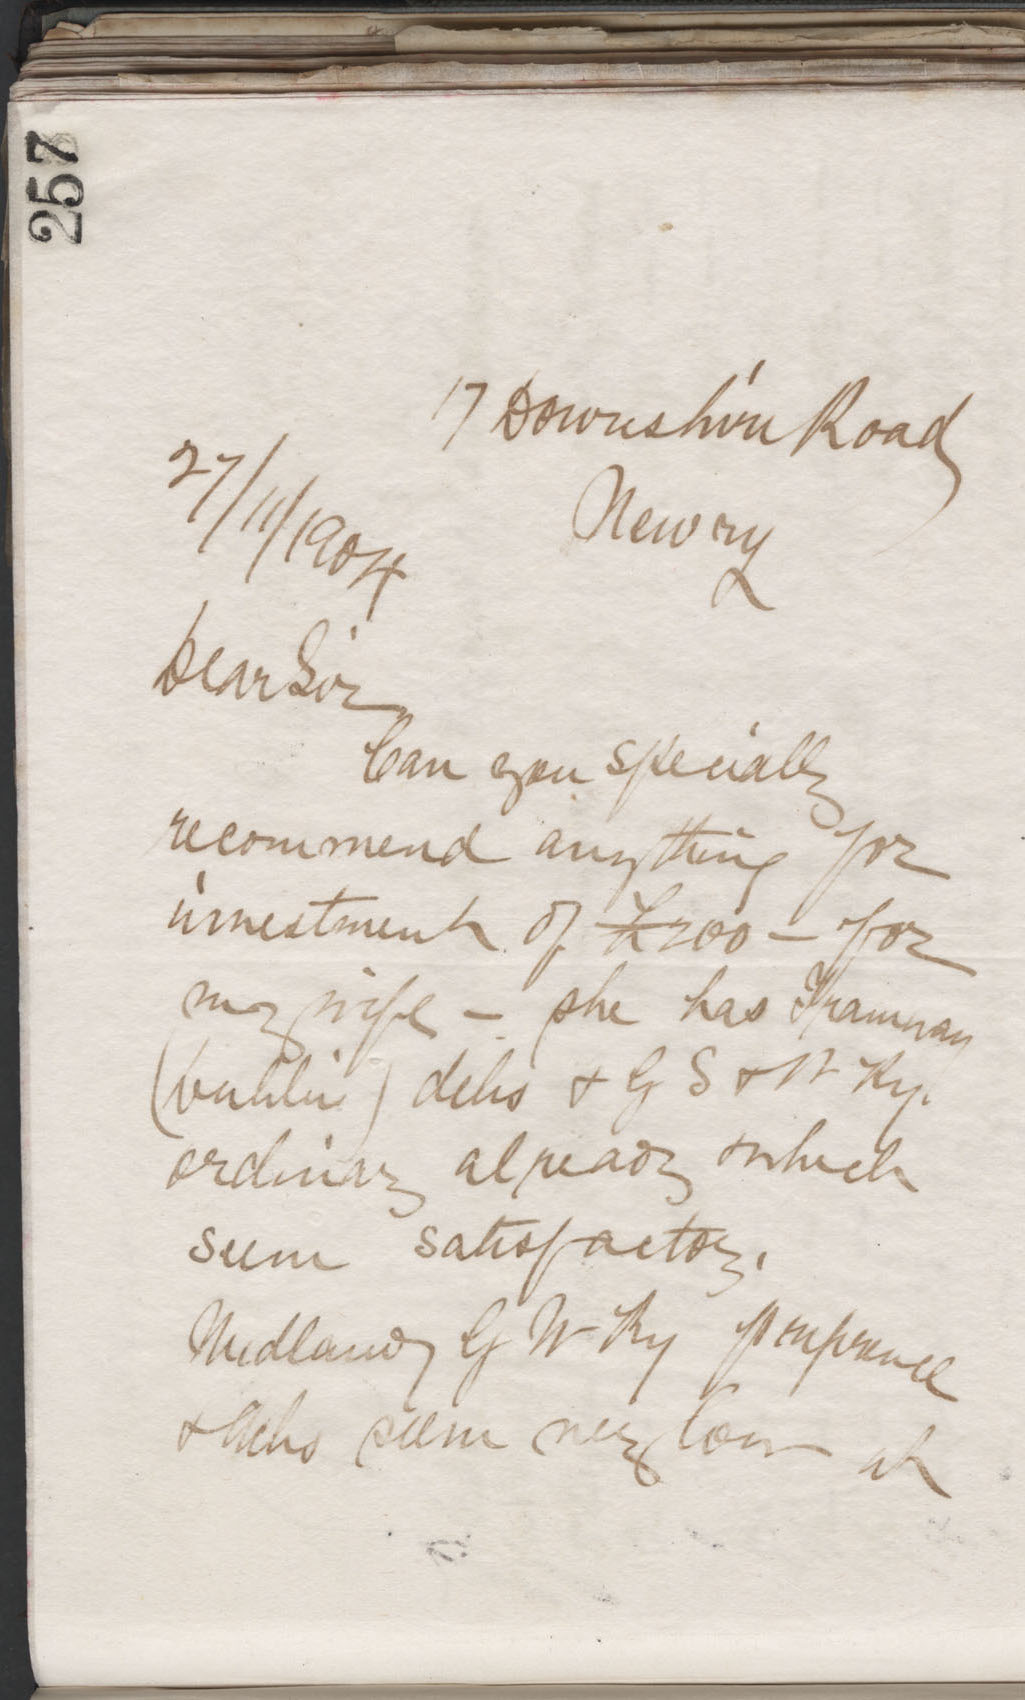 257
17 Downshire Road
Newry
27/11/1904
Dear Sir,
Can you specially
recommend anything for
investment of £200 - for
my wife - she has Tramway
(Dublin) debs & G S & W Ry.
ordinary already which
seem satisfactory.
Midland G W Ry preference
& debs seem very low at